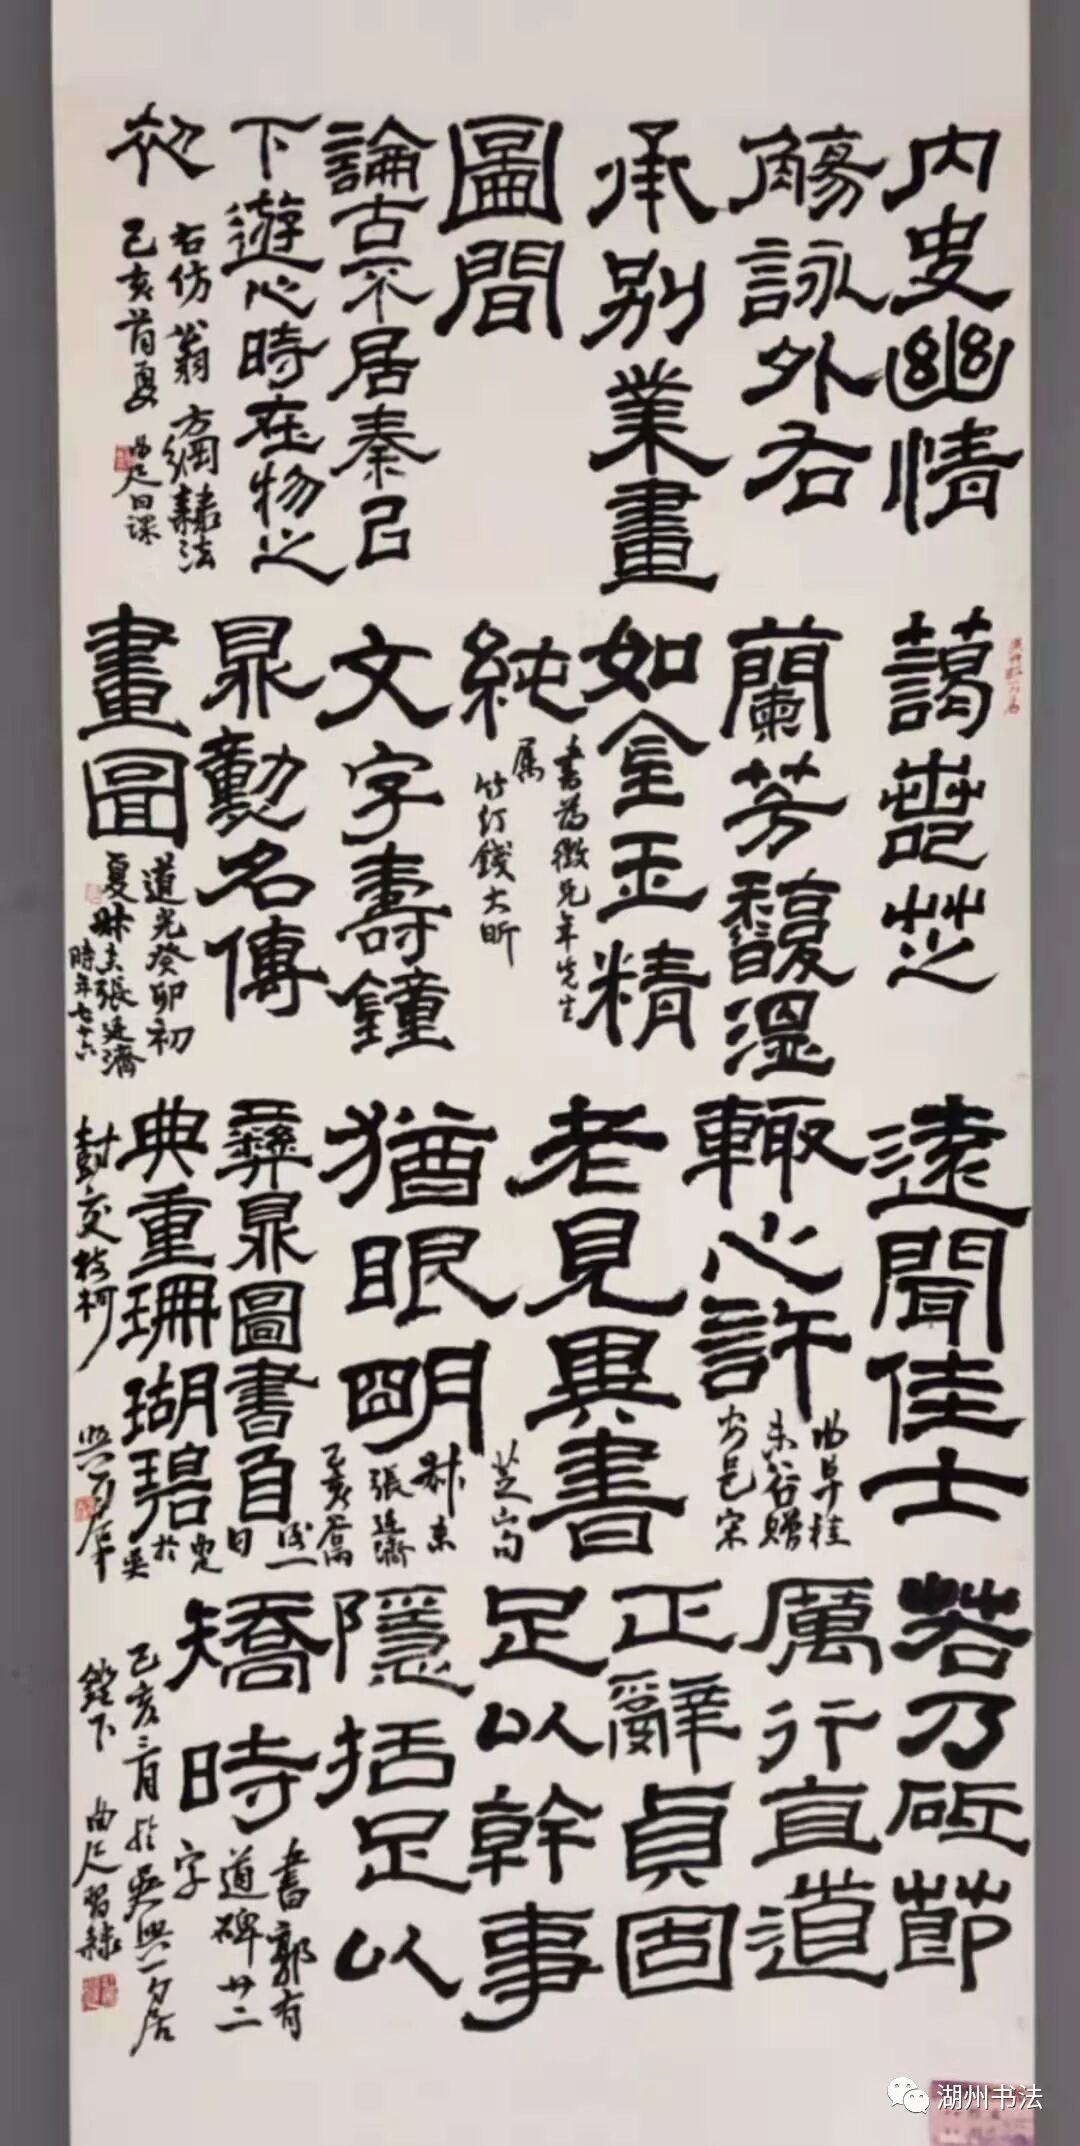 内史幽情
觴詠外右
承别業畫
圖間
論古不居秦已
下遊心時在物之
初
右仿翁方綱隸法
己亥首夏
曲尺日課
藹藹芝
蘭芳馥溫
如金玉精
純
書為徵兄年先生
属
竹汀錢大昕
文字壽鐘
鼎勳名傳
畫圖
道光癸卯初
夏叔未張廷濟
時年七十六
遠聞佳士
輒心許
曲阜桂
未谷贈
安邑宋
芝山句
老見異書
猶眼明
叔未
張廷濟
彝鼎圖書自
典重珊瑚碧
樹交枝柯
若乃砥節
厲行直道
正辭貞固
足以幹事
隱括足以
矯時
書郭有
道碑廿二
字
己亥三月於吳興一勺居
鐙下
曲尺習隸
湖州书法